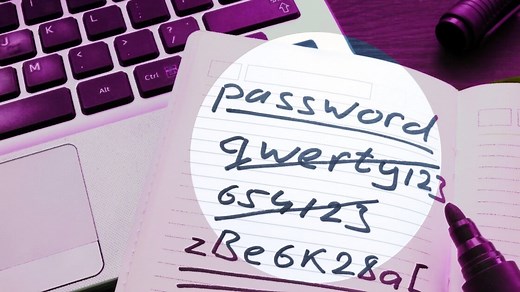 password
qwerty123
654123
zBe6K28a[
M
K
Alt
Ctrl